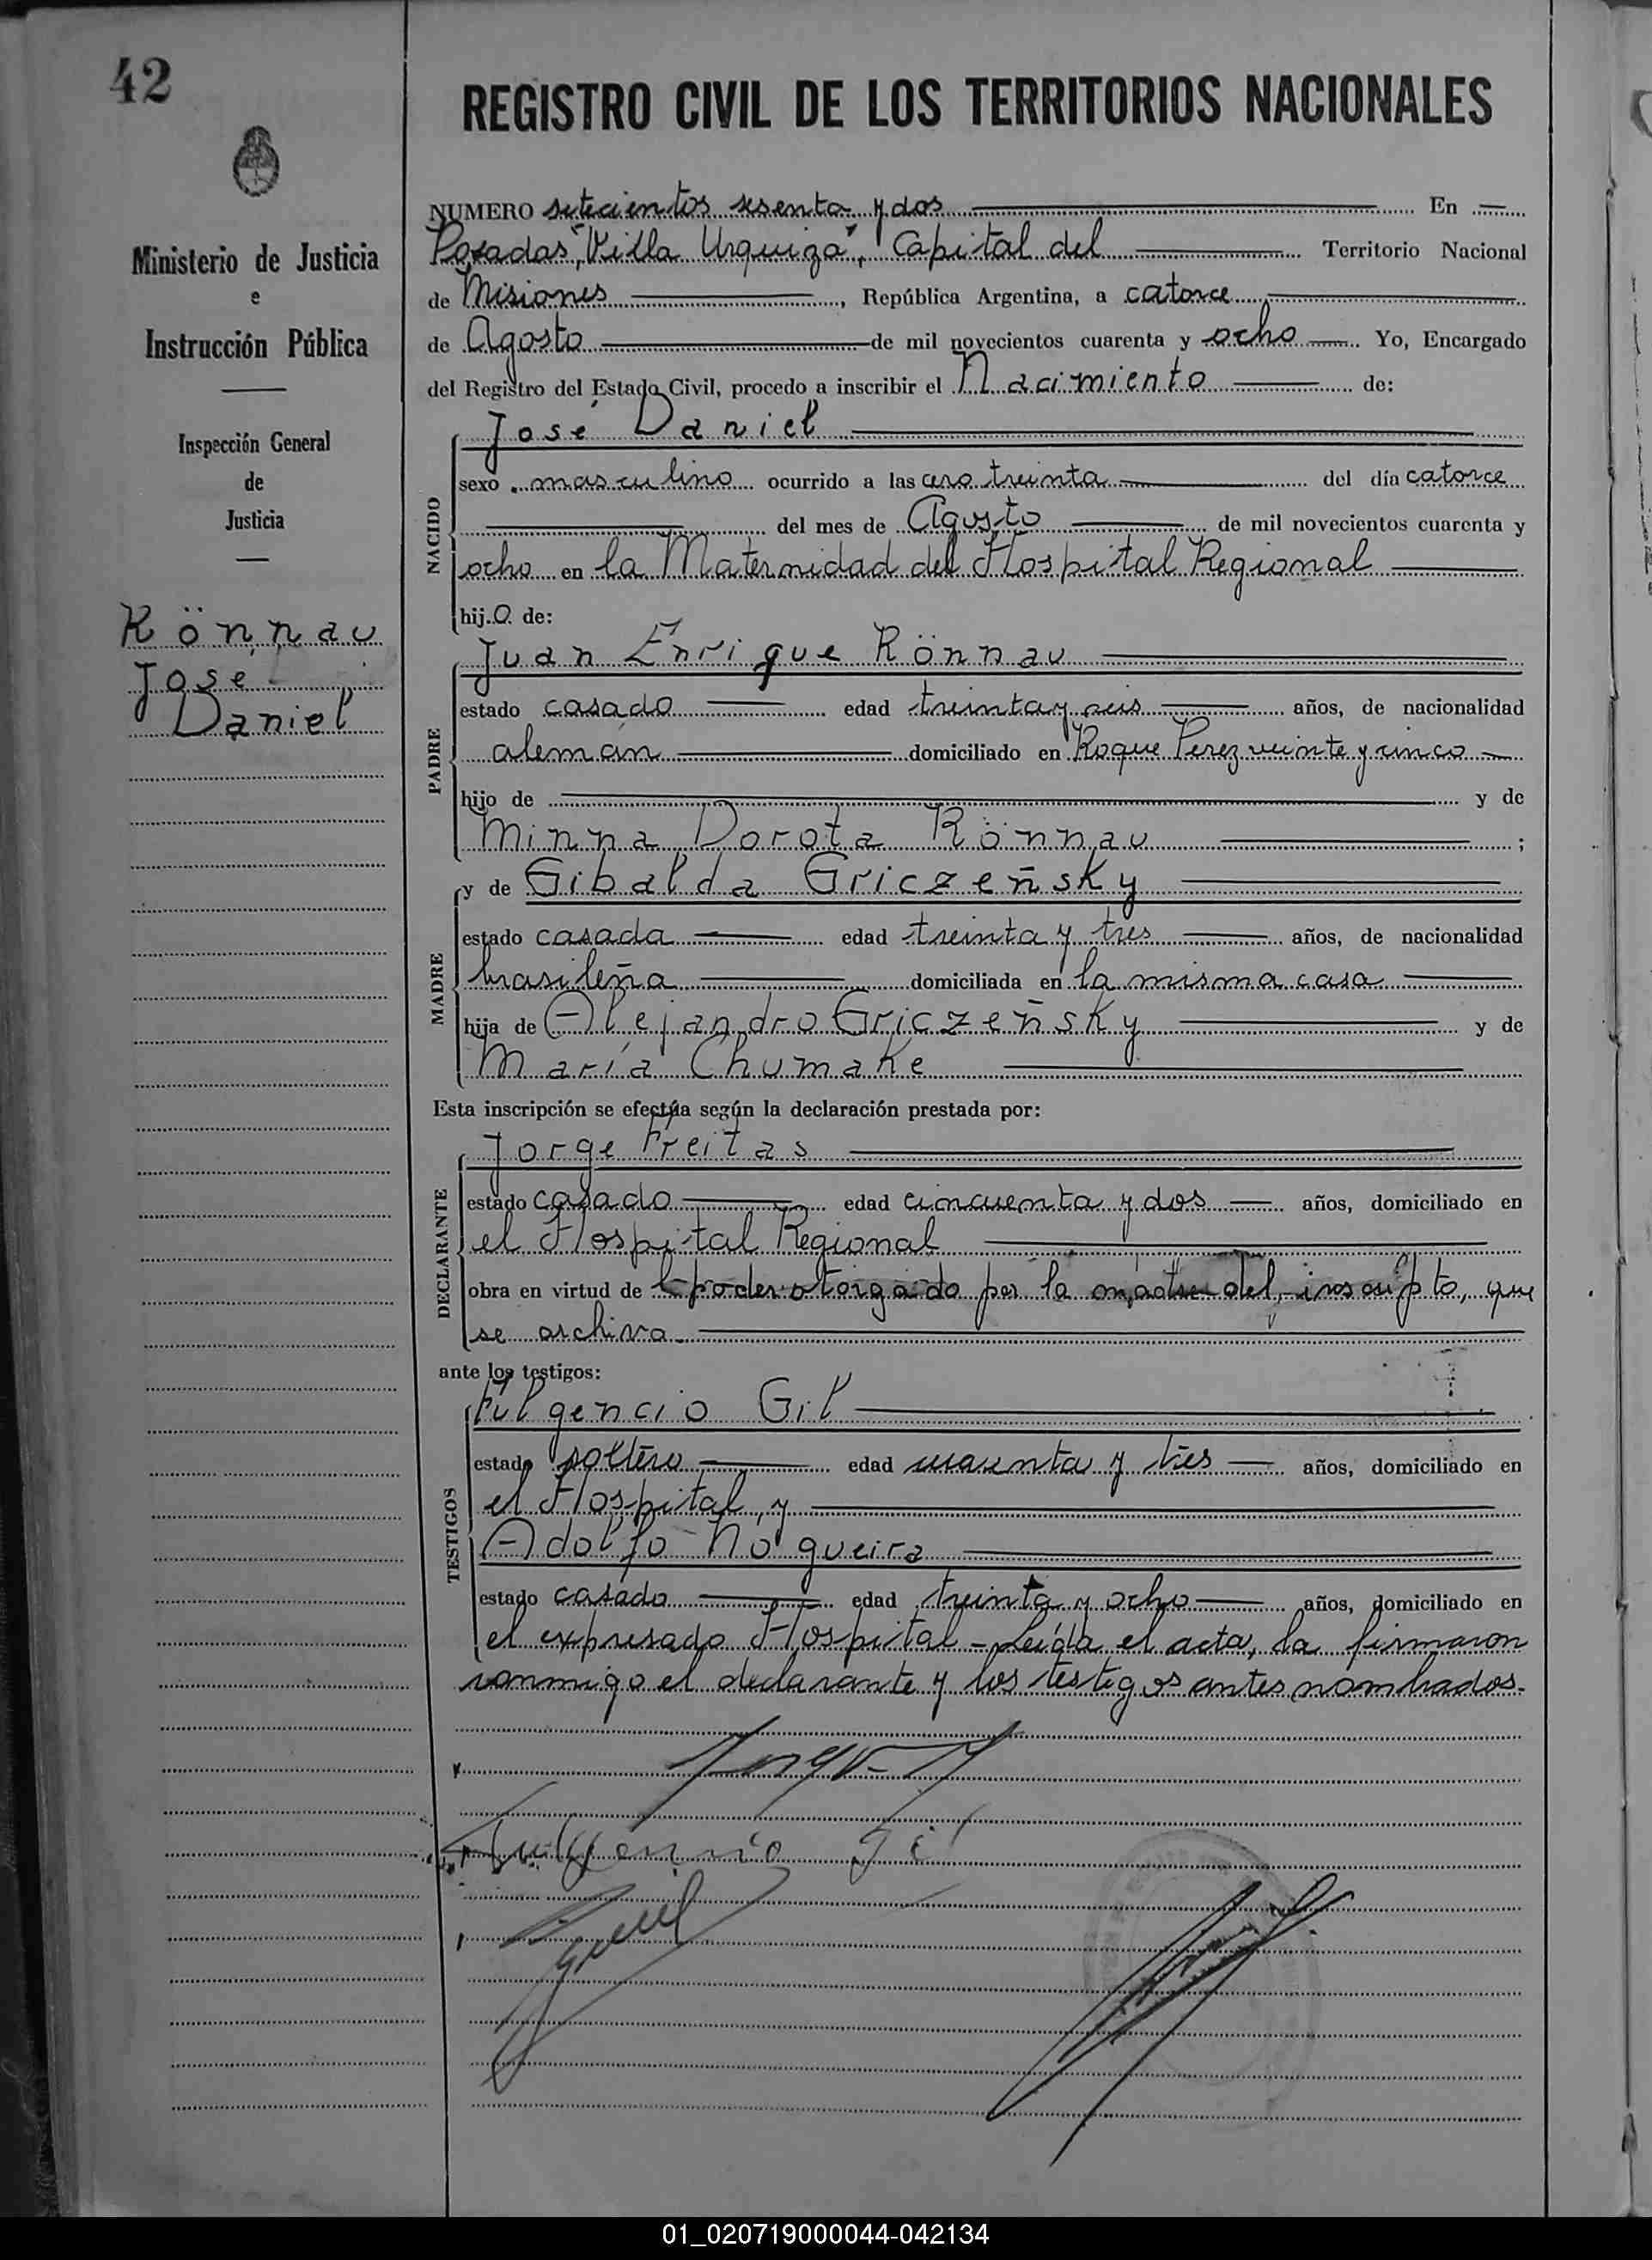 42
REGISTRO CIVIL DE LOS TERRITORIOS NACIONALES
Ministerio de Justicia
e
Instrucción Pública
Inspección General
de
Justicia
Rönnau
José
Daniel
NUMERO setecientos sesenta y dos En
Posadas, "Villa Urquiza", Capital del Territorio Nacional
de Misiones, República Argentina, a catorce
de Agosto de mil novecientos cuarenta y ocho Yo, Encargado
del Registro del Estado Civil, procedo a inscribir el Nacimiento de:
NACIDO
José Daniel
sexo masculino ocurrido a las cero treinta del día catorce
del mes de Agosto de mil novecientos cuarenta y
ocho en la Maternidad del Hospital Regional
hijo de:
PADRE
Juan Enrique Rönnau
estado casado edad treinta y seis años, de nacionalidad
alemán domiciliado en Roque Perez veinte y cinco
hijo de y de
Minna Dorota Rönnau ;
MADRE
y de Gibalda Griczeñsky
estado casada edad treinta y tres años, de nacionalidad
brasileña domiciliada en la misma casa
hija de Alejandro Griczeñsky y de
María Chumake
Esta inscripción se efectúa según la declaración prestada por:
DECLARANTE
Jorge Freitas
estado casado edad cincuenta y dos años, domiciliado en
el Hospital Regional
obra en virtud de poder otorgado por la madre del inscripto, que
se archiva.
ante los testigos:
TESTIGOS
Fulgencio Gil
estado soltero edad cuarenta y tres años, domiciliado en
el Hospital, y
Adolfo Nogueira
estado casado edad treinta y ocho años, domiciliado en
el expresado Hospital - Leída el acta, la firmaron
conmigo el declarante y los testigos antes nombrados.-
Fulgencio Gil
01_020719000044-042134